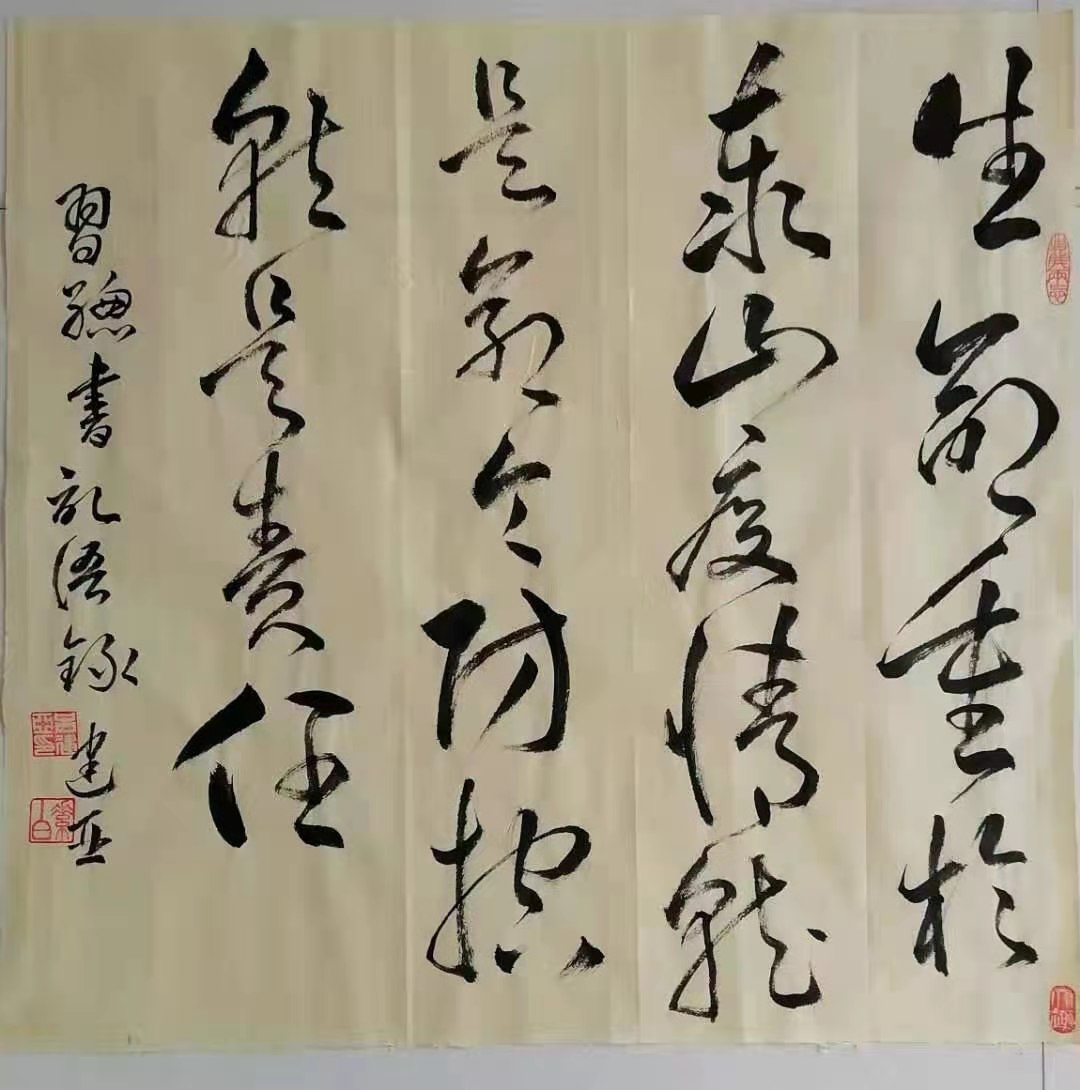 生命重於
泰山疫情就
是命令防控
就是責任
習總書記语錄 建亚